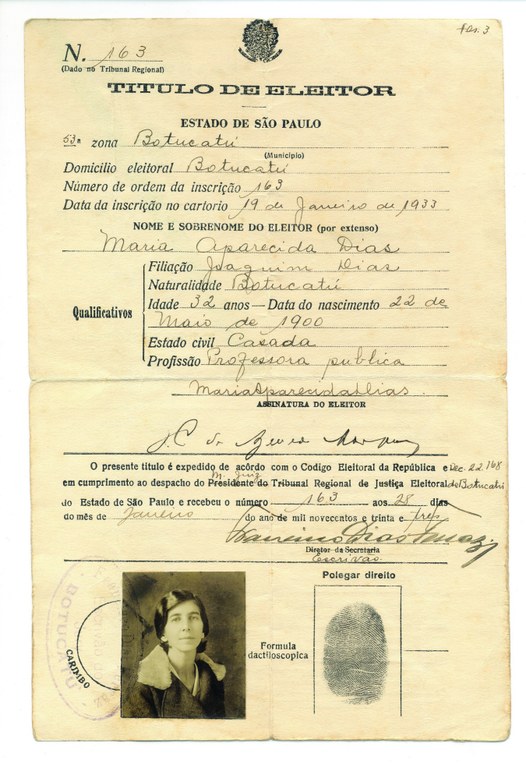 fls. 3
N. 163
(Dado no Tribunal Regional)
TITULO DE ELEITOR
ESTADO DE SÃO PAULO
53ª zona Botucatú
(Municipio)
Domicilio eleitoral Botucatú
Número de ordem da inscrição 163
Data da inscrição no cartorio 19 de Janeiro de 1933
NOME E SOBRENOME DO ELEITOR (por extenso)
Maria Aparecida Dias
Filiação Joaquim Dias
Naturalidade Botucatú
Idade 32 anos — Data do nascimento 22 de
Maio de 1900
Qualificativos
Estado civil Casada
Profissão Professora publica
Maria Aparecida Dias.
ASSINATURA DO ELEITOR
O presente titulo é expedido de acôrdo com o Codigo Eleitoral da República e Dec. 22.168
M. Juiz
em cumprimento ao despacho do Presidente do Tribunal Regional de Justiça Eleitoral de Botucatú
do Estado de São Paulo e recebeu o número 163 aos 28 dias
do mês de Janeiro do ano de mil novecentos e trinta e tres
Francisco Dias
Diretor da Secretaria
Escrivão
Polegar direito
CARIMBO
BOTUCATU
Formula
dactiloscopica